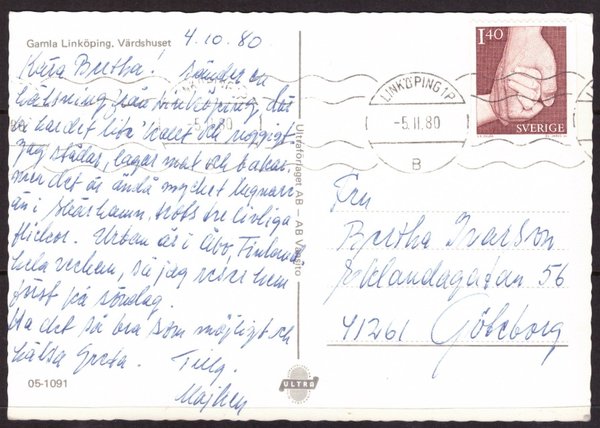 Gamla Linköping, Värdshuset
4.10.80
Kära Bertha! Sänder en
hälsning från Linköping, där
vi har det lite kallt och ruggigt.
Jag städar, lagar mat och bakar,
men det är ändå mycket lugnare
än i Skärhamn, trots tre livliga
flickor. Urban är i Åbo, Finland
hela veckan, så jag reser hem
först på söndag.
Ha det så bra som möjligt och
hälsa Greta. Tillg.
Majken
05-1091
Ultraförlaget AB - AB Vänsjto
ULTRA
LINKÖPING 1P
-5.11.80
B
LINKÖPING
-5. 80
1 40
SVERIGE
Fru
Bertha Ivarson
Eklandagatan 56
41261 Göteborg